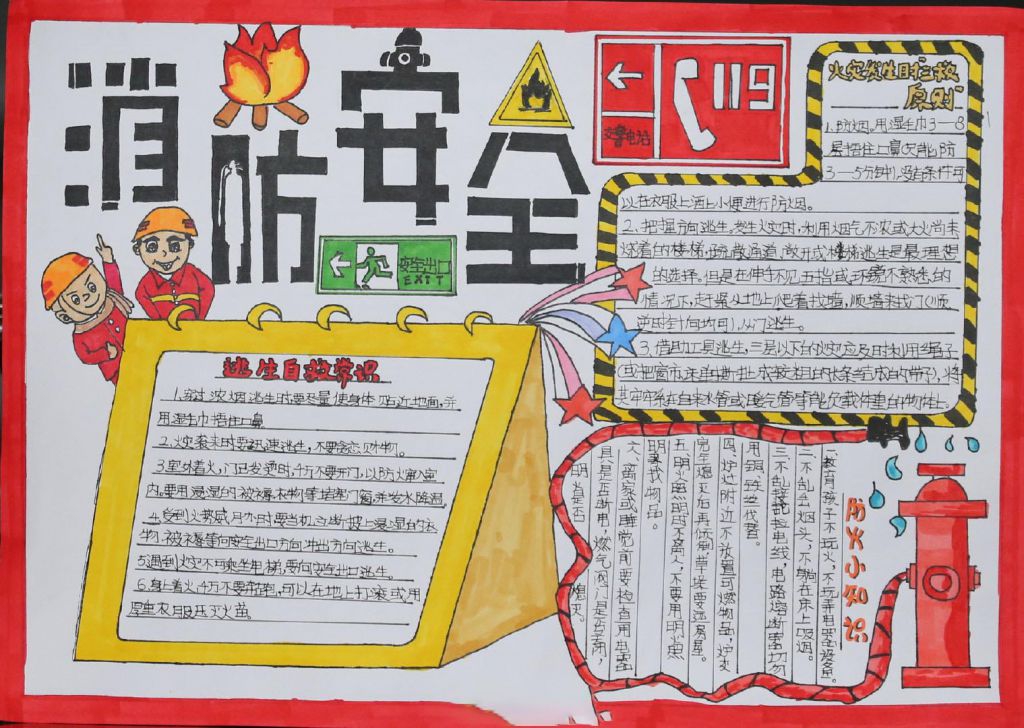 消防安全
119
火警电话
安全出口
EXIT
火灾发生时"三救
原则"
1.防烟。用湿毛巾3—8
层捂住口鼻
3—5分钟,没有条件可
以在衣服上洒上小便进行防烟。
2.把握方向逃生。发生火灾时,利用烟气不浓或大火尚未
燃着的楼梯、疏散通道、敞开式楼梯逃生是最理想
的选择。但是在伸手不见五指或环境不熟悉的
情况下,赶紧从地上爬着找墙,顺墙找门(顺
逆时针向均可),从门逃生。
3.借助工具逃生,三层以下的火灾应及时利用绳子
(或把窗帘、床单撕扯成较粗的长条结成的带子),将
其牢牢系在自来水管或暖气管等能负载体重的物体上。
逃生自救常识
1.穿过浓烟逃生时要尽量使身体贴近地面,并
用湿毛巾捂住口鼻
2.火灾袭来时要迅速逃生,不要贪恋财物。
3.室外着火,门已发烫时,千万不要开门,以防火窜入室
内。要用浸湿的被褥、衣物等堵塞门窗,并发水降温。
4.受到火势威胁时要当机立断披上浸湿的衣
物、被褥等向安全出口方向冲出方向逃生。
5.遇到火灾不可乘坐电梯,要向安全出口逃生。
6.身上着火,千万不要奔跑,可以在地上打滚或用
厚重衣服压灭火苗。
防火小知识
一、教育孩子不玩火,不玩弄电器设备。
二、不乱丢烟头,不躺在床上吸烟。
三、不乱接乱拉电线,电路熔断器切勿
用铜、铁丝代替。
四、炉灶附近不放置可燃物品,炉灰
完全熄灭后再倾倒草堆要远离房屋。
五、明火照明时不离人,不要用明火照
明寻找物品。
六、离家或睡觉前要检查用电器
具是否断电,燃气阀门是否关闭,
明火是否熄灭。